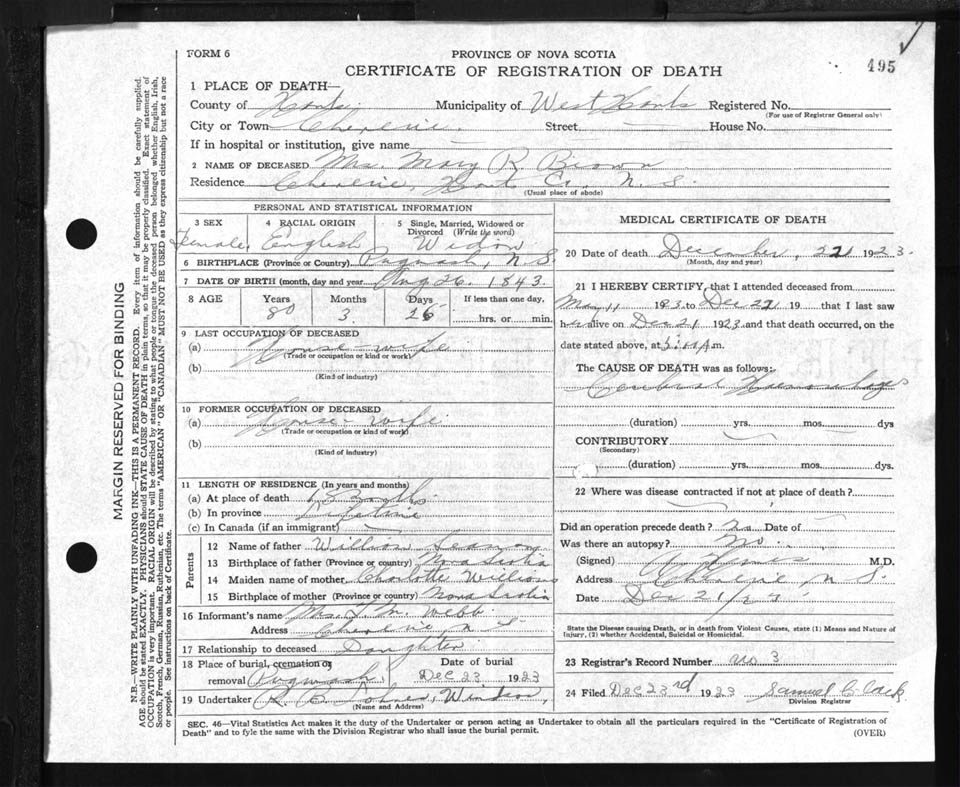 495
FORM 6
PROVINCE OF NOVA SCOTIA
CERTIFICATE OF REGISTRATION OF DEATH
1 PLACE OF DEATH—
County of Hants. Municipality of West Hants Registered No.
(For use of Registrar General only)
City or Town Cheverie. Street House No.
If in hospital or institution, give name
2 NAME OF DECEASED Mrs. Mary R. Brown
Residence Cheverie, Hants Co. N. S.
(Usual place of abode)
PERSONAL AND STATISTICAL INFORMATION
3 SEX 4 RACIAL ORIGIN 5 Single, Married, Widowed or Divorced (Write the word)
Female, English Widow
6 BIRTHPLACE (Province or Country) Pugwash, N S.
7 DATE OF BIRTH (month, day and year) Aug 26. 1843.
8 AGE Years Months Days If less than one day,
80 3 hrs. or min.
9 LAST OCCUPATION OF DECEASED
(a) House wife
(Trade or occupation or kind or work)
(b)
(Kind of industry)
10 FORMER OCCUPATION OF DECEASED
(a) House-wife
(Trade or occupation or kind of work)
(b)
(Kind of industry)
11 LENGTH OF RESIDENCE (In years and months)
(a) At place of death
(b) In province Lifetime
(c) In Canada (if an immigrant)
Parents
12 Name of father William
13 Birthplace of father (Province or country) Nova Scotia
14 Maiden name of mother Charlotte Williams
15 Birthplace of mother (Province or country) Nova Scotia
16 Informant's name Mrs. Webb
Address Cheverie, N S
17 Relationship to deceased Daughter
18 Place of burial, cremation or removal Pugwash Date of burial Dec 23 1923
19 Undertaker R. B. Windsor,
(Name and Address)
MEDICAL CERTIFICATE OF DEATH
20 Date of death December, 21 1923.
(Month, day and year)
21 I HEREBY CERTIFY, that I attended deceased from
May 11 1923 to Dec 21 19 that I last saw
her alive on Dec 21 1923 and that death occurred, on the
date stated above, at m.
The CAUSE OF DEATH was as follows:
Cerebral Hemorrhage
(duration) yrs. mos. dys
CONTRIBUTORY
(Secondary)
(duration) yrs. mos. dys.
22 Where was disease contracted if not at place of death?
Did an operation precede death? No Date of
Was there an autopsy? No.
(Signed) M.D.
Address Cheverie N S.
Date Dec 21/23
State the Disease causing Death, or in death from Violent Causes, state (1) Means and Nature of Injury, (2) whether Accidental, Suicidal or Homicidal.
23 Registrar's Record Number No 3
24 Filed Dec 23rd 1923 Samuel Clack
Division Registrar
SEC. 46—Vital Statistics Act makes it the duty of the Undertaker or person acting as Undertaker to obtain all the particulars required in the "Certificate of Registration of
Death" and to fyle the same with the Division Registrar who shall issue the burial permit. (OVER)
MARGIN RESERVED FOR BINDING
N.B.—WRITE PLAINLY WITH UNFADING INK—THIS IS A PERMANENT RECORD. Every item of information should be carefully supplied.
AGE should be stated EXACTLY. PHYSICIANS should STATE CAUSE OF DEATH in plain terms, so that it may be properly classified. Exact statement of
OCCUPATION is very important. RACIAL ORIGIN will be described by stating to what people or tongue the deceased person belonged whether English, Irish,
Scotch, French, German, Russian, Ruthenian, etc. The terms "AMERICAN" OR "CANADIAN" MUST NOT BE USED as they express citizenship but not a race
or people. See instructions on back of Certificate.